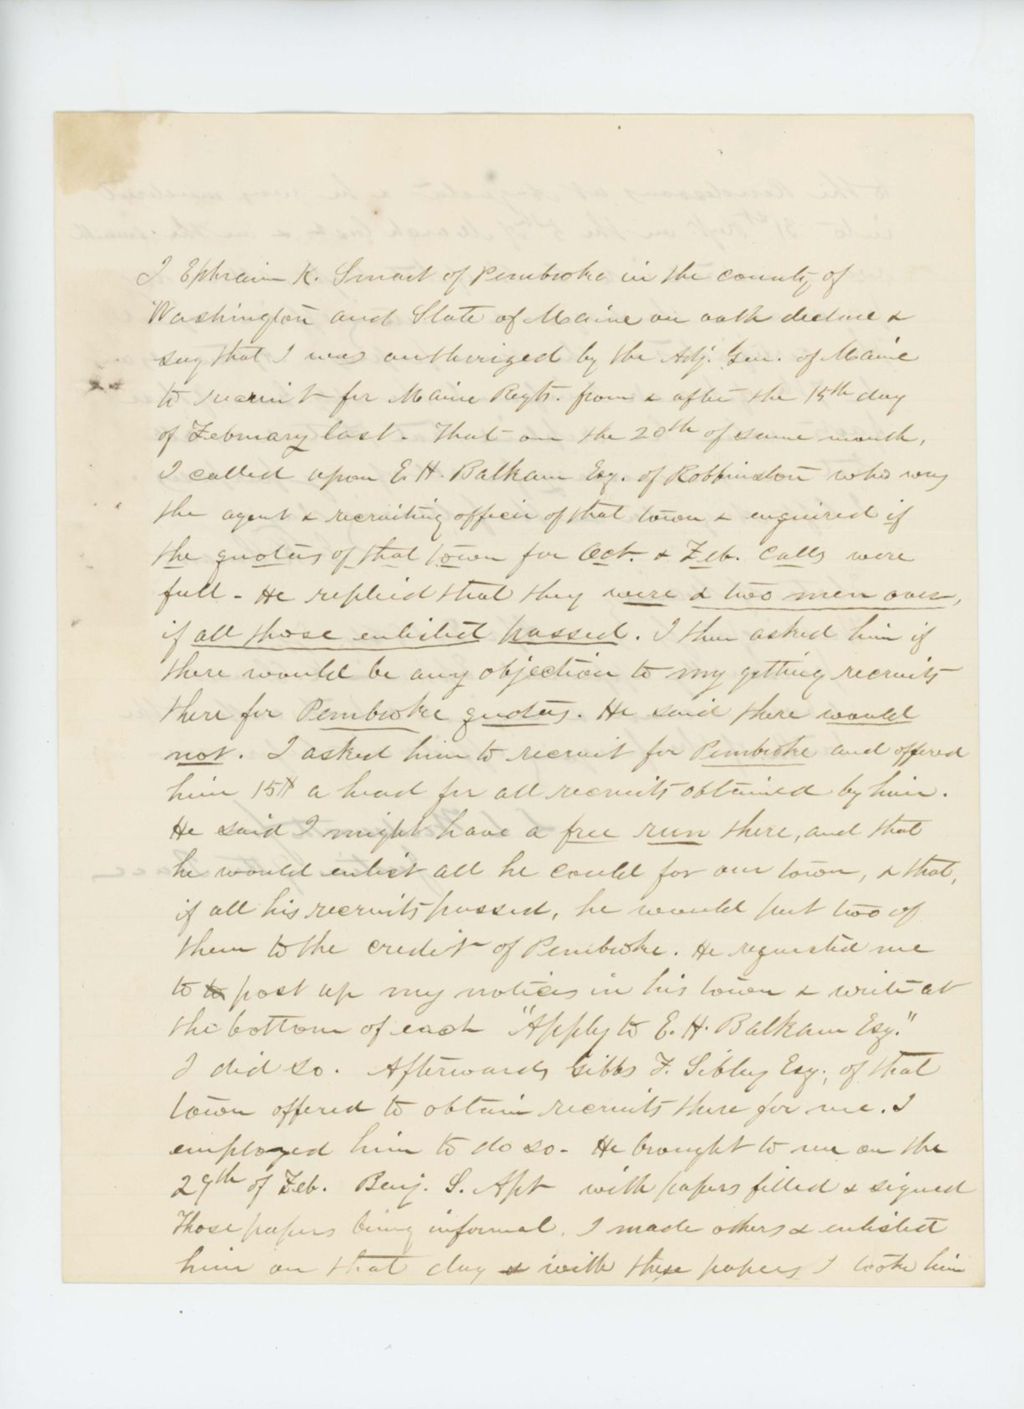 I Ephraim K. Smart of Pembroke in the county of
Washington and State of Maine on oath declare &
say that I was authorized by the Adj. Gen. of Maine
to recruit for Maine Regts. from & after the 15th day
of February last. That on the 20th of same month,
I called upon E. H. Balkam Esq. of Robbinston who was
the agent & recruiting officer of that town & enquired if
the quotas of that town for Oct. & Feb. Calls were
full - He replied that they were & two men over,
if all those enlisted passed. I then asked him if
there would be any objection to my getting recruits
there for Pembroke quotas. He said there would
not. I asked him to recruit for Pembroke and offered
him 15$ a head for all recruits obtained by him.
He said I might have a free run there, and that
he would enlist all he could for our town, & that,
if all his recruits passed, he would put two of
them to the credit of Pembroke. He requested me
to post up my notices in his town & write at
the bottom of each "Apply to E. H. Balkam Esq."
I did so. Afterwards Gibbs F. Sibley Esq., of that
town offered to obtain recruits there for me. I
employed him to do so - He brought to me on the
29th of Feb. Benj. S. Apt with papers filled & signed
Those papers being informal, I made others & enlisted
him on that day & with these papers I took him